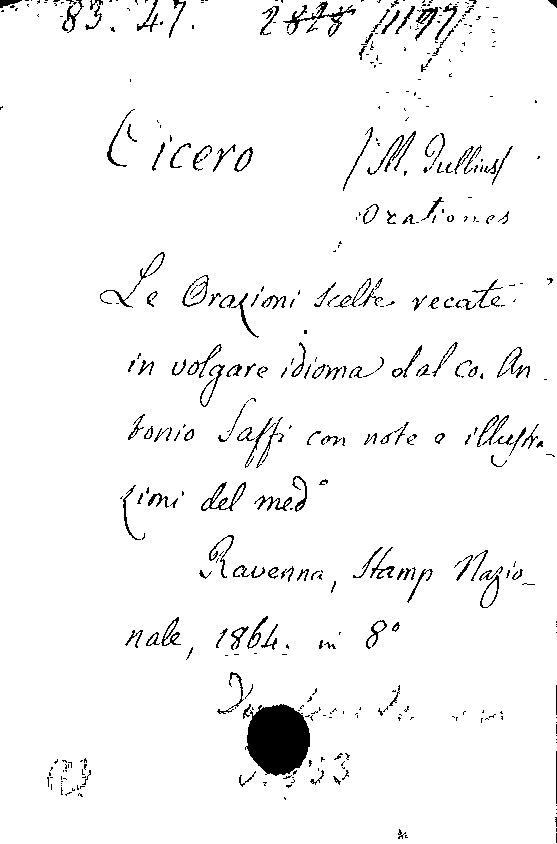 83. 47. 2828 /1197/
Cicero /M. Tullius/
Orationes
Le Orazioni scelte recate
in volgare idioma dal co. An-
tonio Saffi con note e illustra-
zioni del med°
Ravenna, Stamp Nazio-
nale, 1864. in 8°